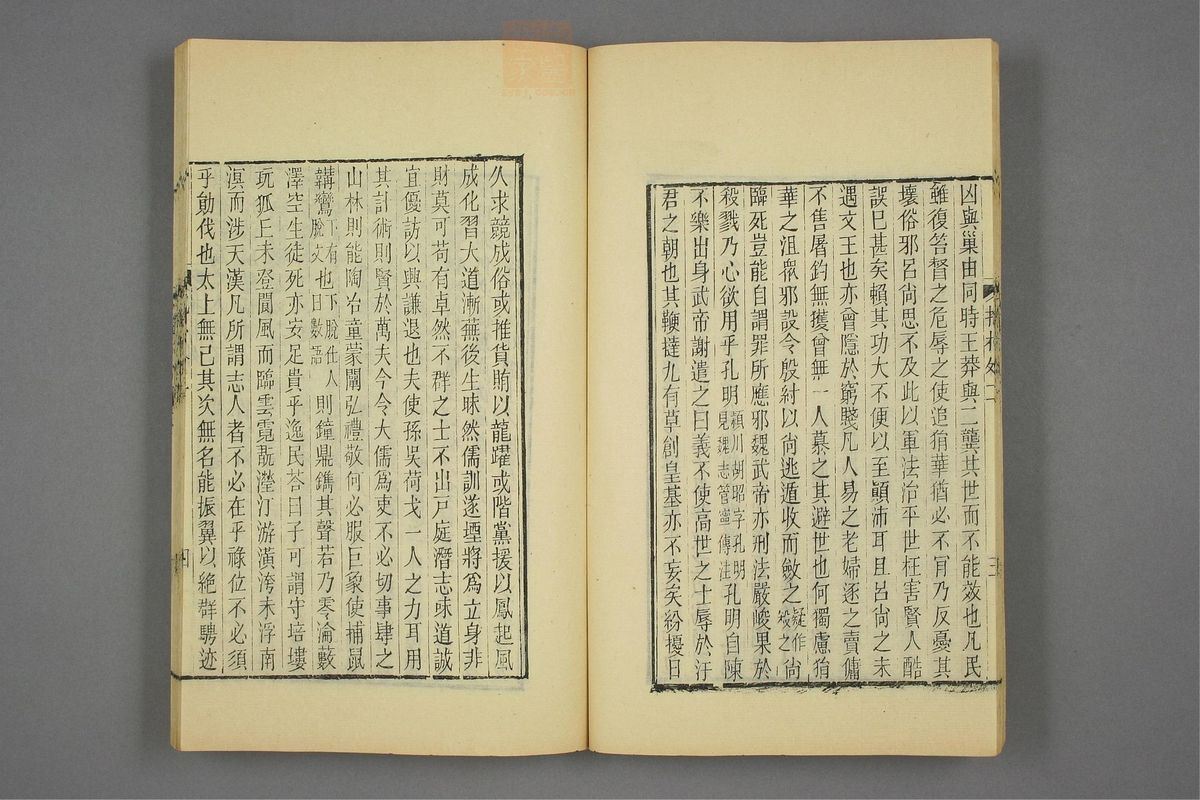 凶與巢由同時王莽與二龔其世而不能效也凡民
雖復笞督之危辱之使追狷華猶必不肯乃反憂其
壞俗邪呂尚思不及此以軍法治平世枉害賢人酷
誤已甚矣賴其功大不便以至顚沛耳且呂尚之未
遇文王也亦曾隱於窮賤凡人易之老婦逐之賣傭
不售屠釣無獲曾無一人慕之其避世也何獨慮狷
華之沮衆邪設令殷紂以尚逃遁收而斂之疑作殺之尚
臨死豈能自謂罪所應邪魏武帝亦刑法嚴峻果於
殺戮乃心欲用乎孔明潁川胡昭字孔明見魏志管寧傳注孔明自陳
不樂出身武帝謝遣之曰義不使高世之士辱於汙
君之朝也其鞭撻九有草創皇基亦不妄矣紛擾日
三
久求競成俗或推貨賄以龍躍或階黨援以鳳起風
成化習大道漸蕪後生昧然儒訓遂堙將爲立身非
財莫可苟有卓然不群之士不出戸庭潛志味道誠
宜優訪以興謙退也夫使孫吳荷戈一人之力耳用
其計術則賢於萬夫今令大儒爲吏不必切事肆之
山林則能陶冶童蒙闡弘禮敬何必服巨象使捕鼠
韝鸞下有脫文也下脫仕人日數語則鐘鼎鐫其聲若乃零淪藪
澤空生徒死亦安足貴乎逸民荅曰子可謂守培塿
玩狐丘未登閬風而臨雲霓翫瀅汀游潢洿未浮南
溟而涉天漢凡所謂志人者不必在乎祿位不必須
乎勛伐也太上無己其次無名能振翼以絶群騁迹
四